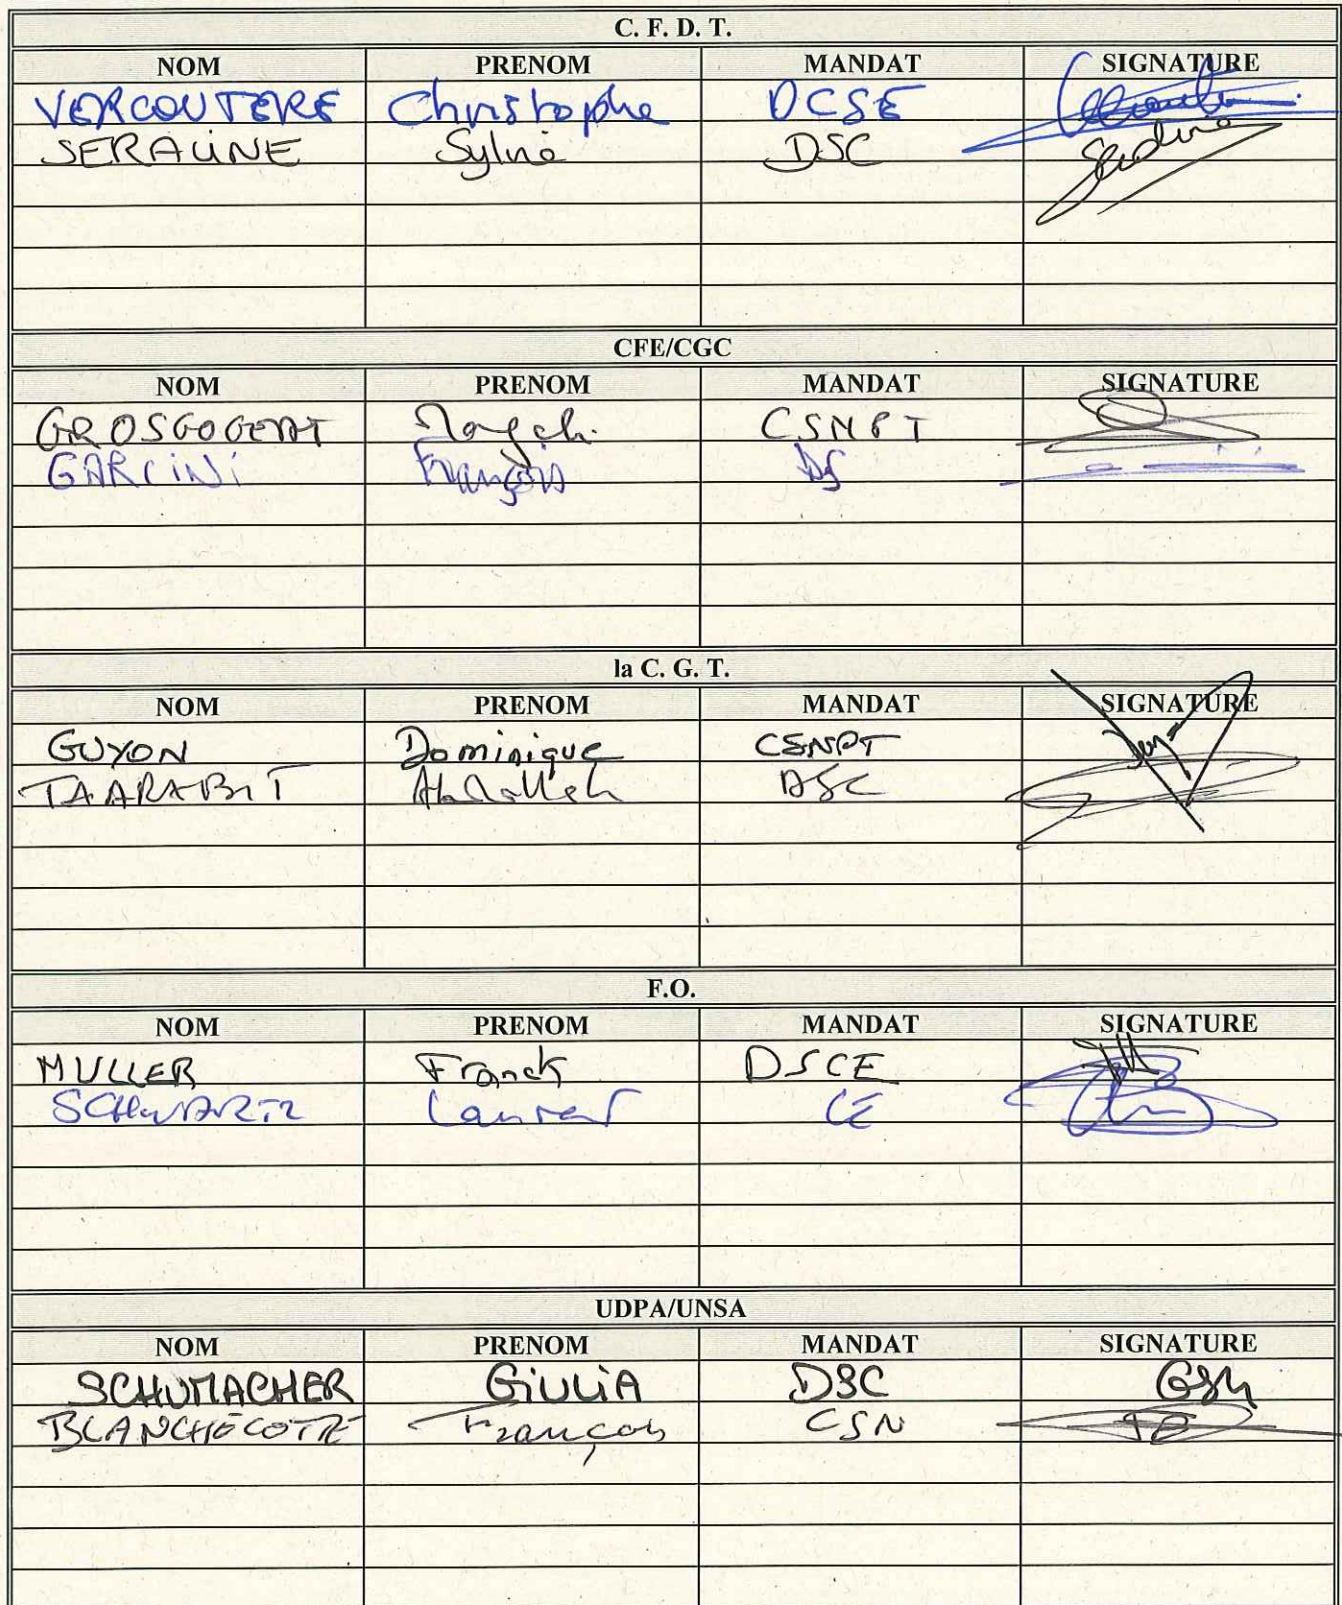 C. F. D. T.
NOM PRENOM MANDAT SIGNATURE
VERCOUTERE Christophe DCSE
SERALINE Sylvie DSC
CFE/CGC
NOM PRENOM MANDAT SIGNATURE
GROSGOGEAT CSNPT
GARCINI François DS
la C. G. T.
NOM PRENOM MANDAT SIGNATURE
GUYON Dominique CSNPT
TAARABIT Abdallah DSC
F.O.
NOM PRENOM MANDAT SIGNATURE
MULLER Franck DSCE
SCHWARTZ Laurent CE
UDPA/UNSA
NOM PRENOM MANDAT SIGNATURE
SCHUMACHER GiULiA DSC GSH
BLANCHECOTTE François CSN